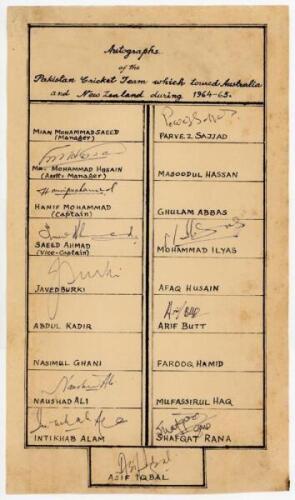 Autographs
of the
Pakistan Cricket Team which toured Australia
and New Zealand during 1964-65.
MIAN MOHAMMAD SAEED
(Manager)
MR. MOHAMMAD HUSAIN
(Asstt. Manager)
Hanif Mohammad
HANIF MOHAMMAD
(Captain)
Saeed Ahmad
SAEED AHMAD
(Vice-Captain)
J Burki
JAVED BURKI
ABDUL KADIR
NASIMUL GHANI
Naushad Ali
NAUSHAD ALI
Intikhab Alam
INTIKHAB ALAM
Pervez Sajjad
PARVEZ SAJJAD
MASOODUL HASSAN
GHULAM ABBAS
MOHAMMAD ILYAS
AFAQ HUSAIN
Arif Butt
ARIF BUTT
FAROOQ HAMID
MUFASSIRUL HAQ
Shafqat Rana
SHAFQAT RANA
Asif Iqbal
ASIF IQBAL